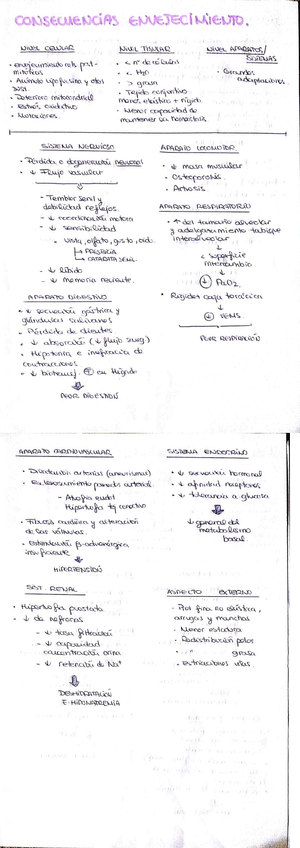 CONSECUENCIAS ENVEJECIMIENTO.
NIVEL CELULAR
• envejecimiento cels. post-
mitóticas
• Aumento lipofuscina y otros
• Deterioro mitocondrial
• Estrés oxidativo
• Mutaciones.
NIVEL TISULAR
• < nº de células
• < H2O
• > grasa
• Tejido conjuntivo
menos elástico + rígido
• Menor capacidad de
mantener su homeostasis
NIVEL APARATOS/
SISTEMAS
• Grandes
adaptaciones.
SISTEMA NERVIOSO
• Pérdida y degeneración neuronal
• ↓ Flujo vascular
- Temblor senil y
debilidad reflejos.
- ↓ coordinación motora
- ↓ sensibilidad
• vista, olfato, gusto, oído.
PRESBICIA
CATARATA SENIL.
- ↓ líbido
- ↓ memoria reciente.
APARATO LOCOMOTOR
• ↓ masa muscular
• Osteoporosis.
• Artrosis.
APARATO RESPIRATORIO
• ↑ del tamaño alveolar
y adelgazamiento tabique
interalveolar
↓
< superficie
intercambio
↓
↓ PaO2.
• Rigidez caja torácica
↓
↓ VEMS
PEOR RESPIRACIÓN
APARATO DIGESTIVO
• ↓ secreción gástrica y
glándulas salivares
• Pérdida de dientes
• ↓ absorción (↓ flujo sang.)
• Hipotonía e ineficacia de
contracciones
• ↓ biotransf. en hígado
PEOR DIGESTIÓN
APARATO CARDIOVASCULAR
• Dilatación arterias (aneurismas)
• Endurecimiento paredes arterial.
- Atrofia endot
Hipertrofia tej conectivo
• Fibrosis cardíaca y alteración
de las válvulas.
• Estimulación β-adrenérgica
insuficiente
HIPERTENSIÓN
SISTEMA ENDOCRINO
• ↓ secreción hormonal
• ↓ afinidad receptores
• ↓ tolerancia a glucosa
↓ general del
metabolismo
basal.
SIST. RENAL
• Hipertrofia próstata
• ↓ de nefronas
- ↓ tasa filtración
- ↓ capacidad
concentración orina
- ↓ retención de Na+
DESHIDRATACIÓN
E HIPONATREMIA
ASPECTO EXTERNO
- Piel fina no elástica,
arrugas y manchas
- Menor estatura
- Redistribución pelos
" grasa
- Estriaciones uñas.